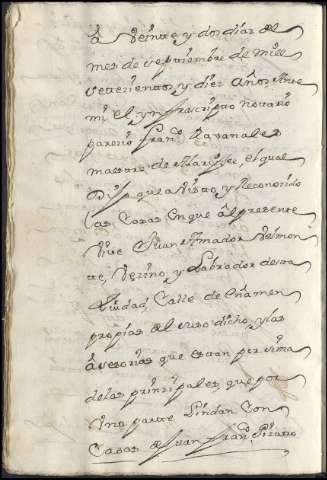 a Veinte y dos dias del
mes de septiembre de mill
setecientos y diez años, Ante
mi el ynfrascripto notario
parecio Franco Ravanales
maestro de Alarife, el qual
Dijo que a Visto, y Reconocido
las, Casas En que âl presente
Vive Juan Amador Velmon
te, Vezino, y Labrador desta
Ciudad, Calle de
propias del suso dicho, y las
âcesorias que estan por
de las prinsipales, que por
Una parte Lindan Con
Casas de Juan Franco Pizarro